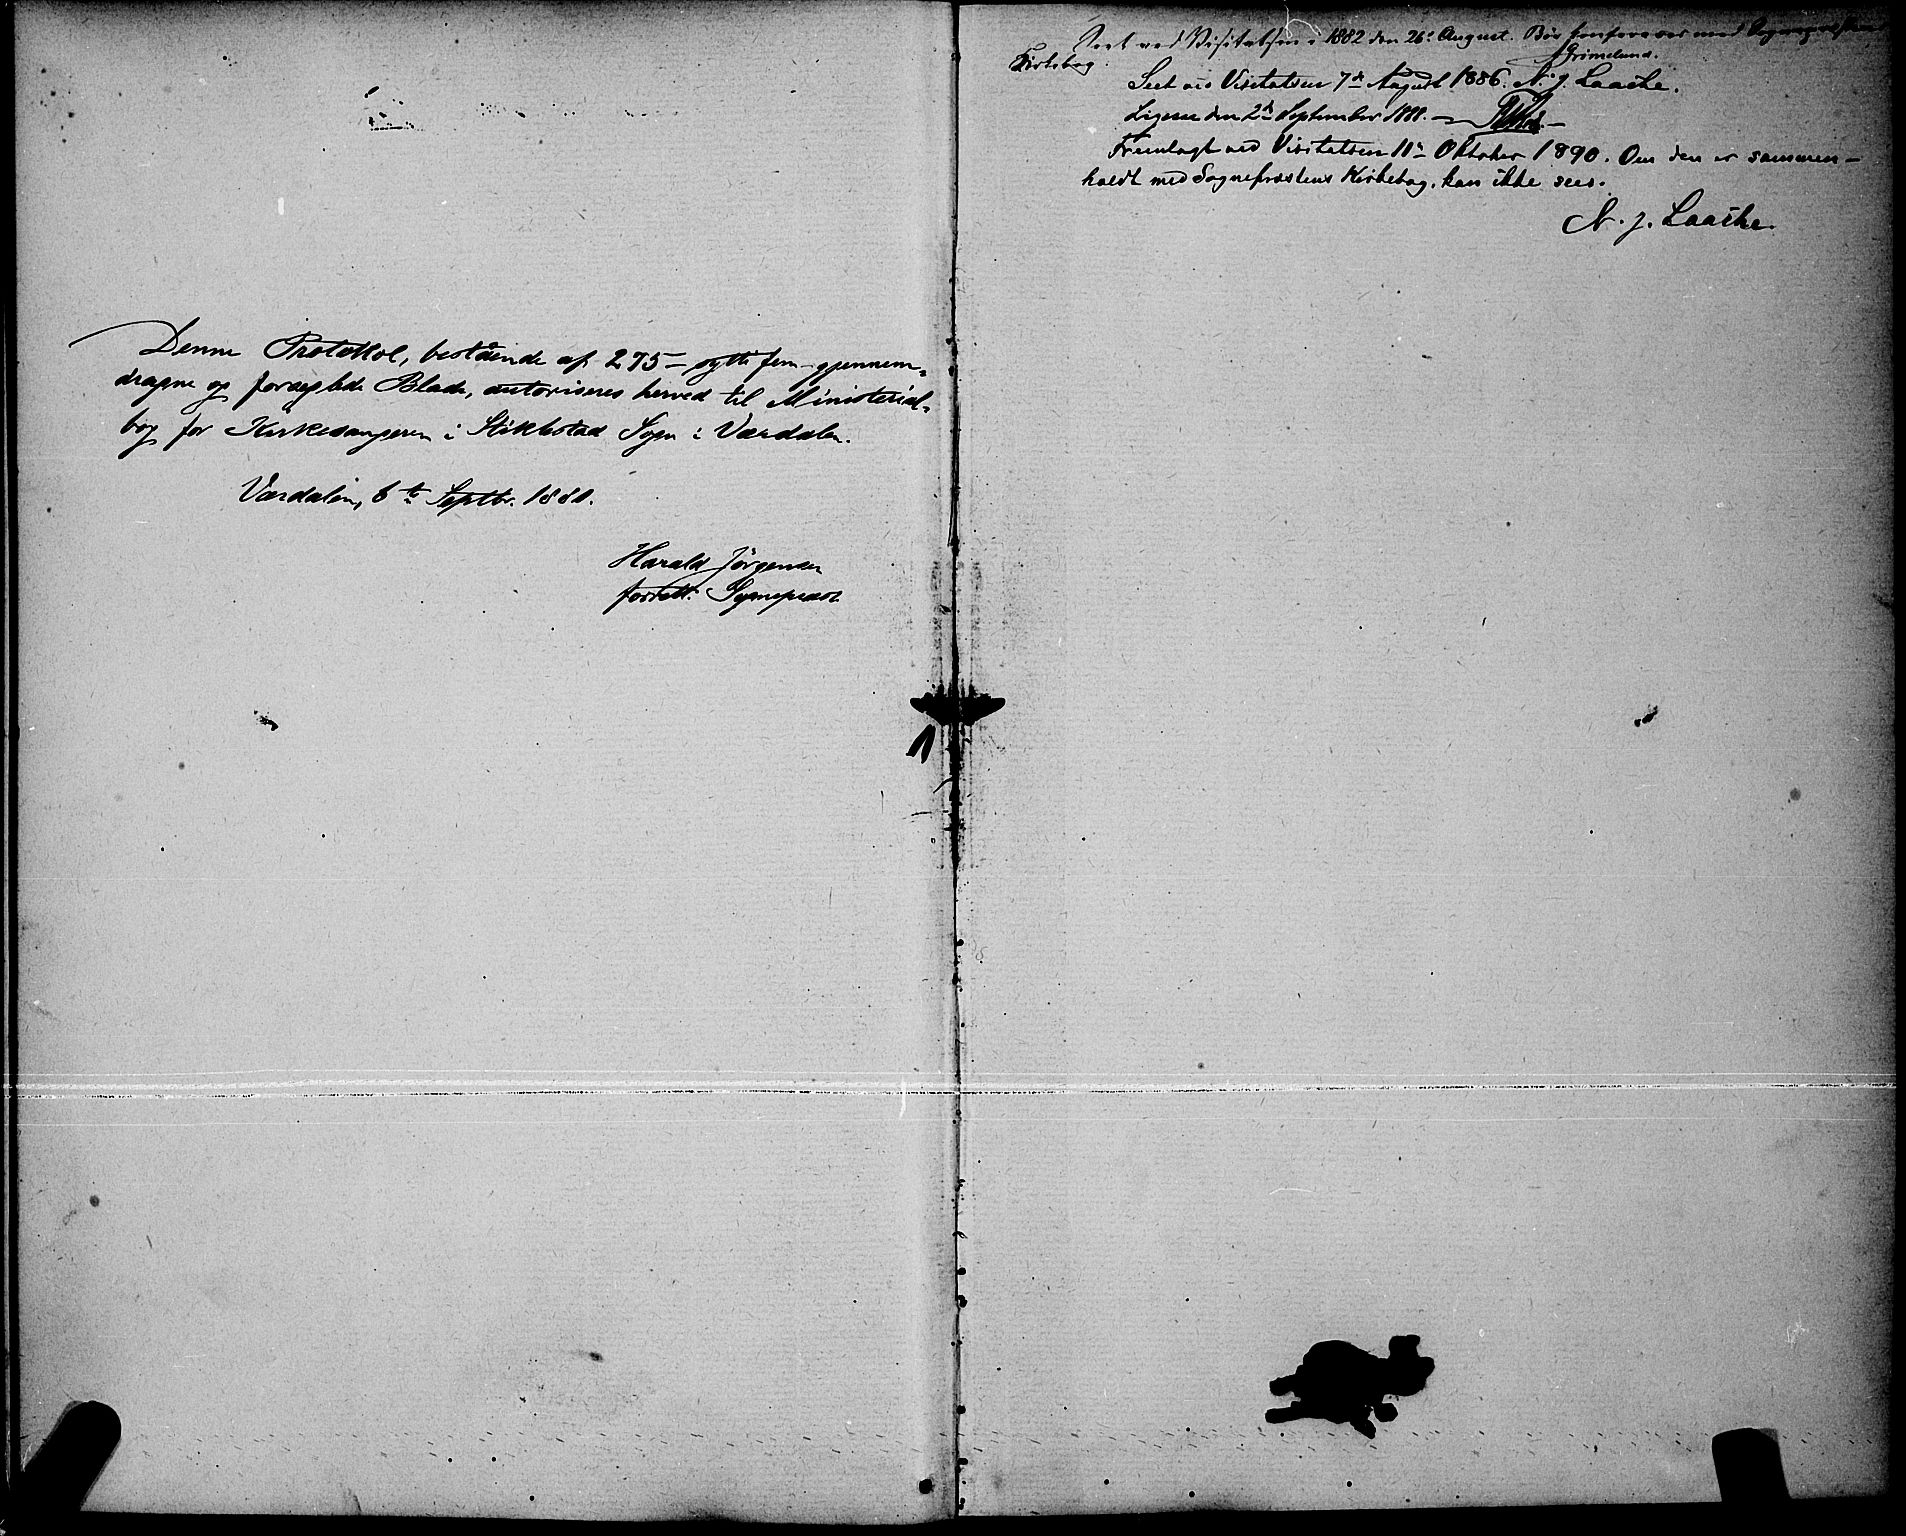 Denne Protokol, bestående af 275 – sytti fem – gjennem-
dragne og forseglede Blade, autoriseres herved til Ministerial-
bog for Kirkesangeren i Stiklestad Sogn i Værdalen.
Værdalen, 6te Septbr. 1880.
Harald Jörgensen
forrett. Sognepræst
Seet ved Visitatsen i 1882 den 26. August. Bör konfereres med Sognepræstens
Kirkebog. Grimelund.
Seet ved Visitatsen 7de August 1886. N. J. Laache.
Ligesaa den 2den September 1888.
Fremlagt ved Visitatsen 11te Oktober 1890. Om den er sammen-
holdt med Sognepræstens Kirkebog, kan ikke sees.
N. J. Laache.